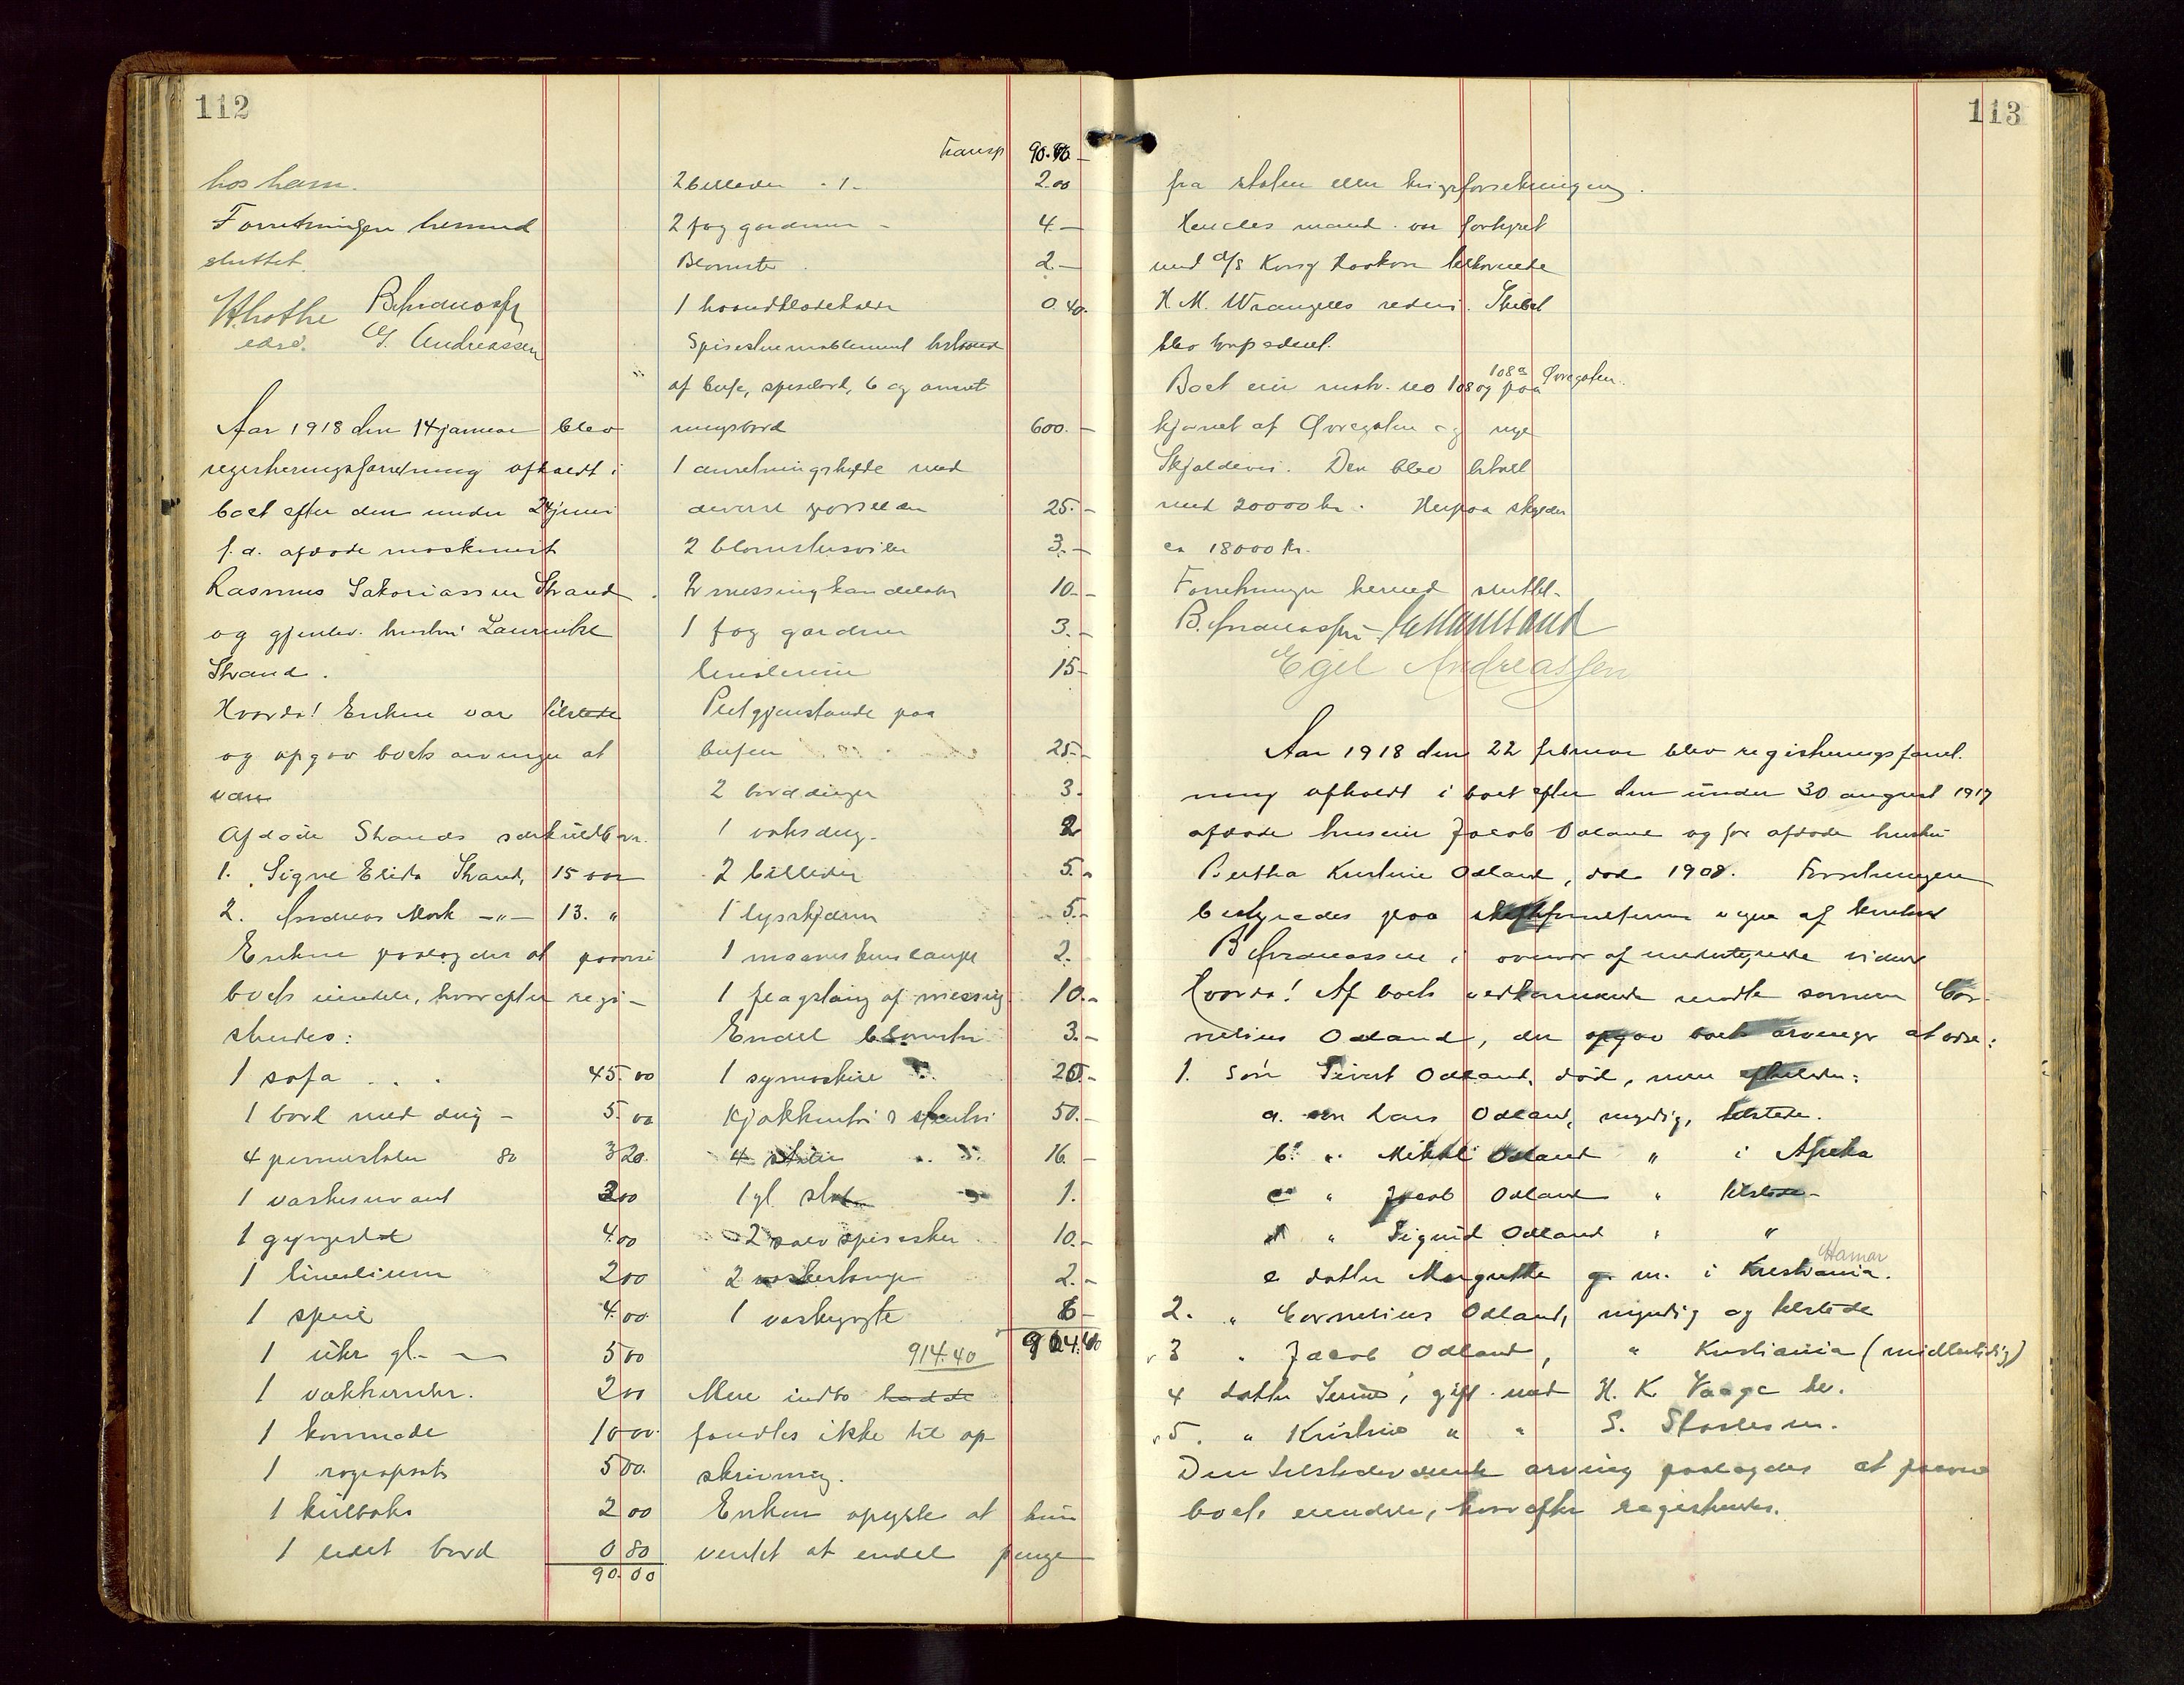 112
hos ham.
Forretningen hermed
sluttet.
B. Andreassen
G. Andreassen
Aar 1918 den 14 januar blev
registreringsforretning afholdt i
boet efter den under 24 juni
f. a. afdøde maskinist
Rasmus Sakariassen Strand
og gjenlev. hustru Laurentse
Strand.
Hvorda! Enken var tilstede
og opgav boets arvinger at
være
Afdøde Strands særkuldbarn.
1. Signe Elida Strand, 15 aar
2. Andreas Mark -"- 13. "
Enken paalagdes at paavise
boets eiendele, hvorefter regi-
streredes:
1 sofa . . . 45.00
1 bord med dug - 5.00
4 pinnestoler 80 3 20.
1 vaskeservant 3 00
1 gyngestol 4.00
1 linolium 2 00
1 speil 4.00
1 uhr gl. - 5 00
1 vækkeruhr. 2 00
1 kommode 10 00
1 røgeopsats 5 00.
1 kulboks 2 00
1 lidet bord 0 80
90.00
Transp 90.00 -
2 billeder - 1 - 2.00
2 fag gardiner - 4.-
Blomster 2.-
1 haandklædeholder 0.40.
Spisestuemøblement bestaaende
af bufe, spisebord, 6 og anret
ningsbord 600.-
1 anretningshylde med
diverse porselæn 25.-
2 blomstersøiler 3.-
2 messingkandelabre 10.-
1 fag gardiner 3.-
linoleum 15-
Pletgjenstande paa
bufeen 25.-
2 bordduger 3.
1 voksdug. 2
2 billeder 5.-
1 lysskjærm 5.-
1 maaneskinslampe 2.-
1 flagstang af messing 10.-
Endel blomster 3.-
1 symaskine 20.-
Kjøkkentøi & stentøi 50.-
4 stoler 16.-
1 gl. stol 1.
2 sølv spiseskeer 10.-
2 vaskestamper 2.-
1 vaskegryte 6-
914.40 914.40
Mere indbo hadde
fandtes ikke til op-
skrivning.
Enken oplyste at hun
ventet at endel penge
113
fra staten eller krigsforsikringen.
Hendes mand var forhyret
med D/S Kong Haakon tilhørende
H. M. Wrangells rederi. Skibet
blev torpederet.
Boet eier matr. no 108 og 108a paa Øvregaten.
hjørnet af Øvregaten og nye
Skjoldevei. Den blev betalt
med 20000 kr. Herpaa skyldes
ca 18000 kr.
Forretningen hermed sluttet.
B. Andreassen
Egil Andreassen
Aar 1918 den 22 februar blev registreringsforret-
ning afholdt i boet efter den under 30 august 1917
afdøde huseier Jacob Odland og før afdøde hustru
Bertha Kristine Odland, død 1908. Forretningen
bestyredes paa skifteforvalterens vegne af
B Andreassen i overvær af undertegnede vidner
Hvorda! Af boets vedkommende mødte sønnen Cor-
nelius Odland, der opgav boets arvinger at være:
1. Søn Sivert Odland, død, men efterlader:
a. søn Lars Odland, myndig, tilstede.
b. " Mikkel Odland " i Afrika
c " Jacob Odland " tilstede -
d " Sigurd Odland " "
e datter Margrethe g. m. i Kristiania. Hamar
2. " Cornelius Odland, myndig og tilstede
3 " Jacob Odland, " Kristiania (midlertidig)
4 datter Serine, gift med H. K. Vaage he.
5. " Kristine " " S. Stosteson.
Den tilstedeværende arving paalagdes at paavise
boets eiendele, hvorefter registreredes.